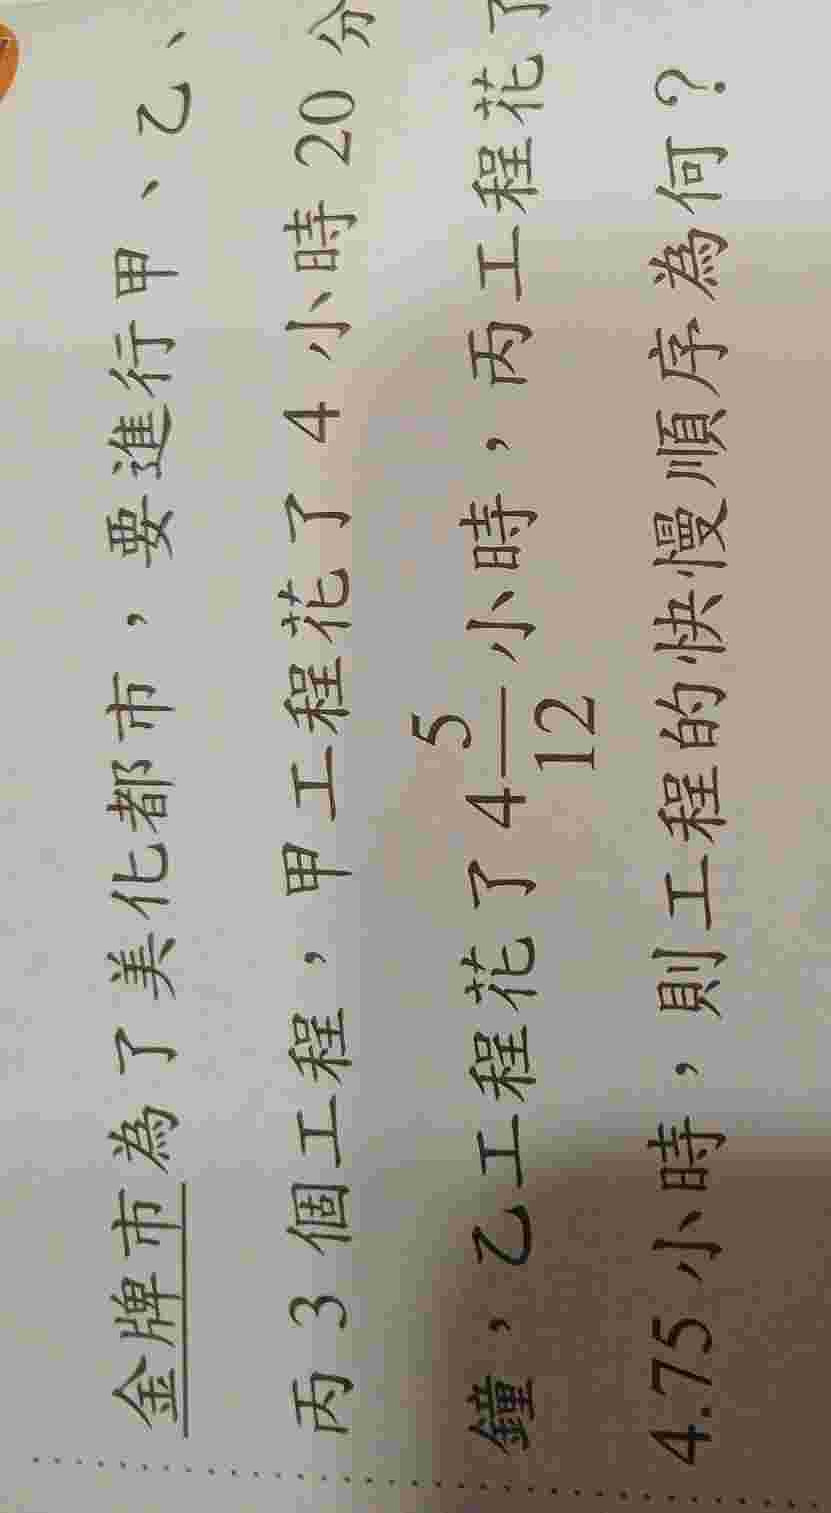 金牌市為了美化都市，要進行甲、乙、
丙 3 個工程，甲工程花了 4 小時 20 分
鐘，乙工程花了 4 5/12 小時，丙工程花了
4.75 小時，則工程的快慢順序為何？